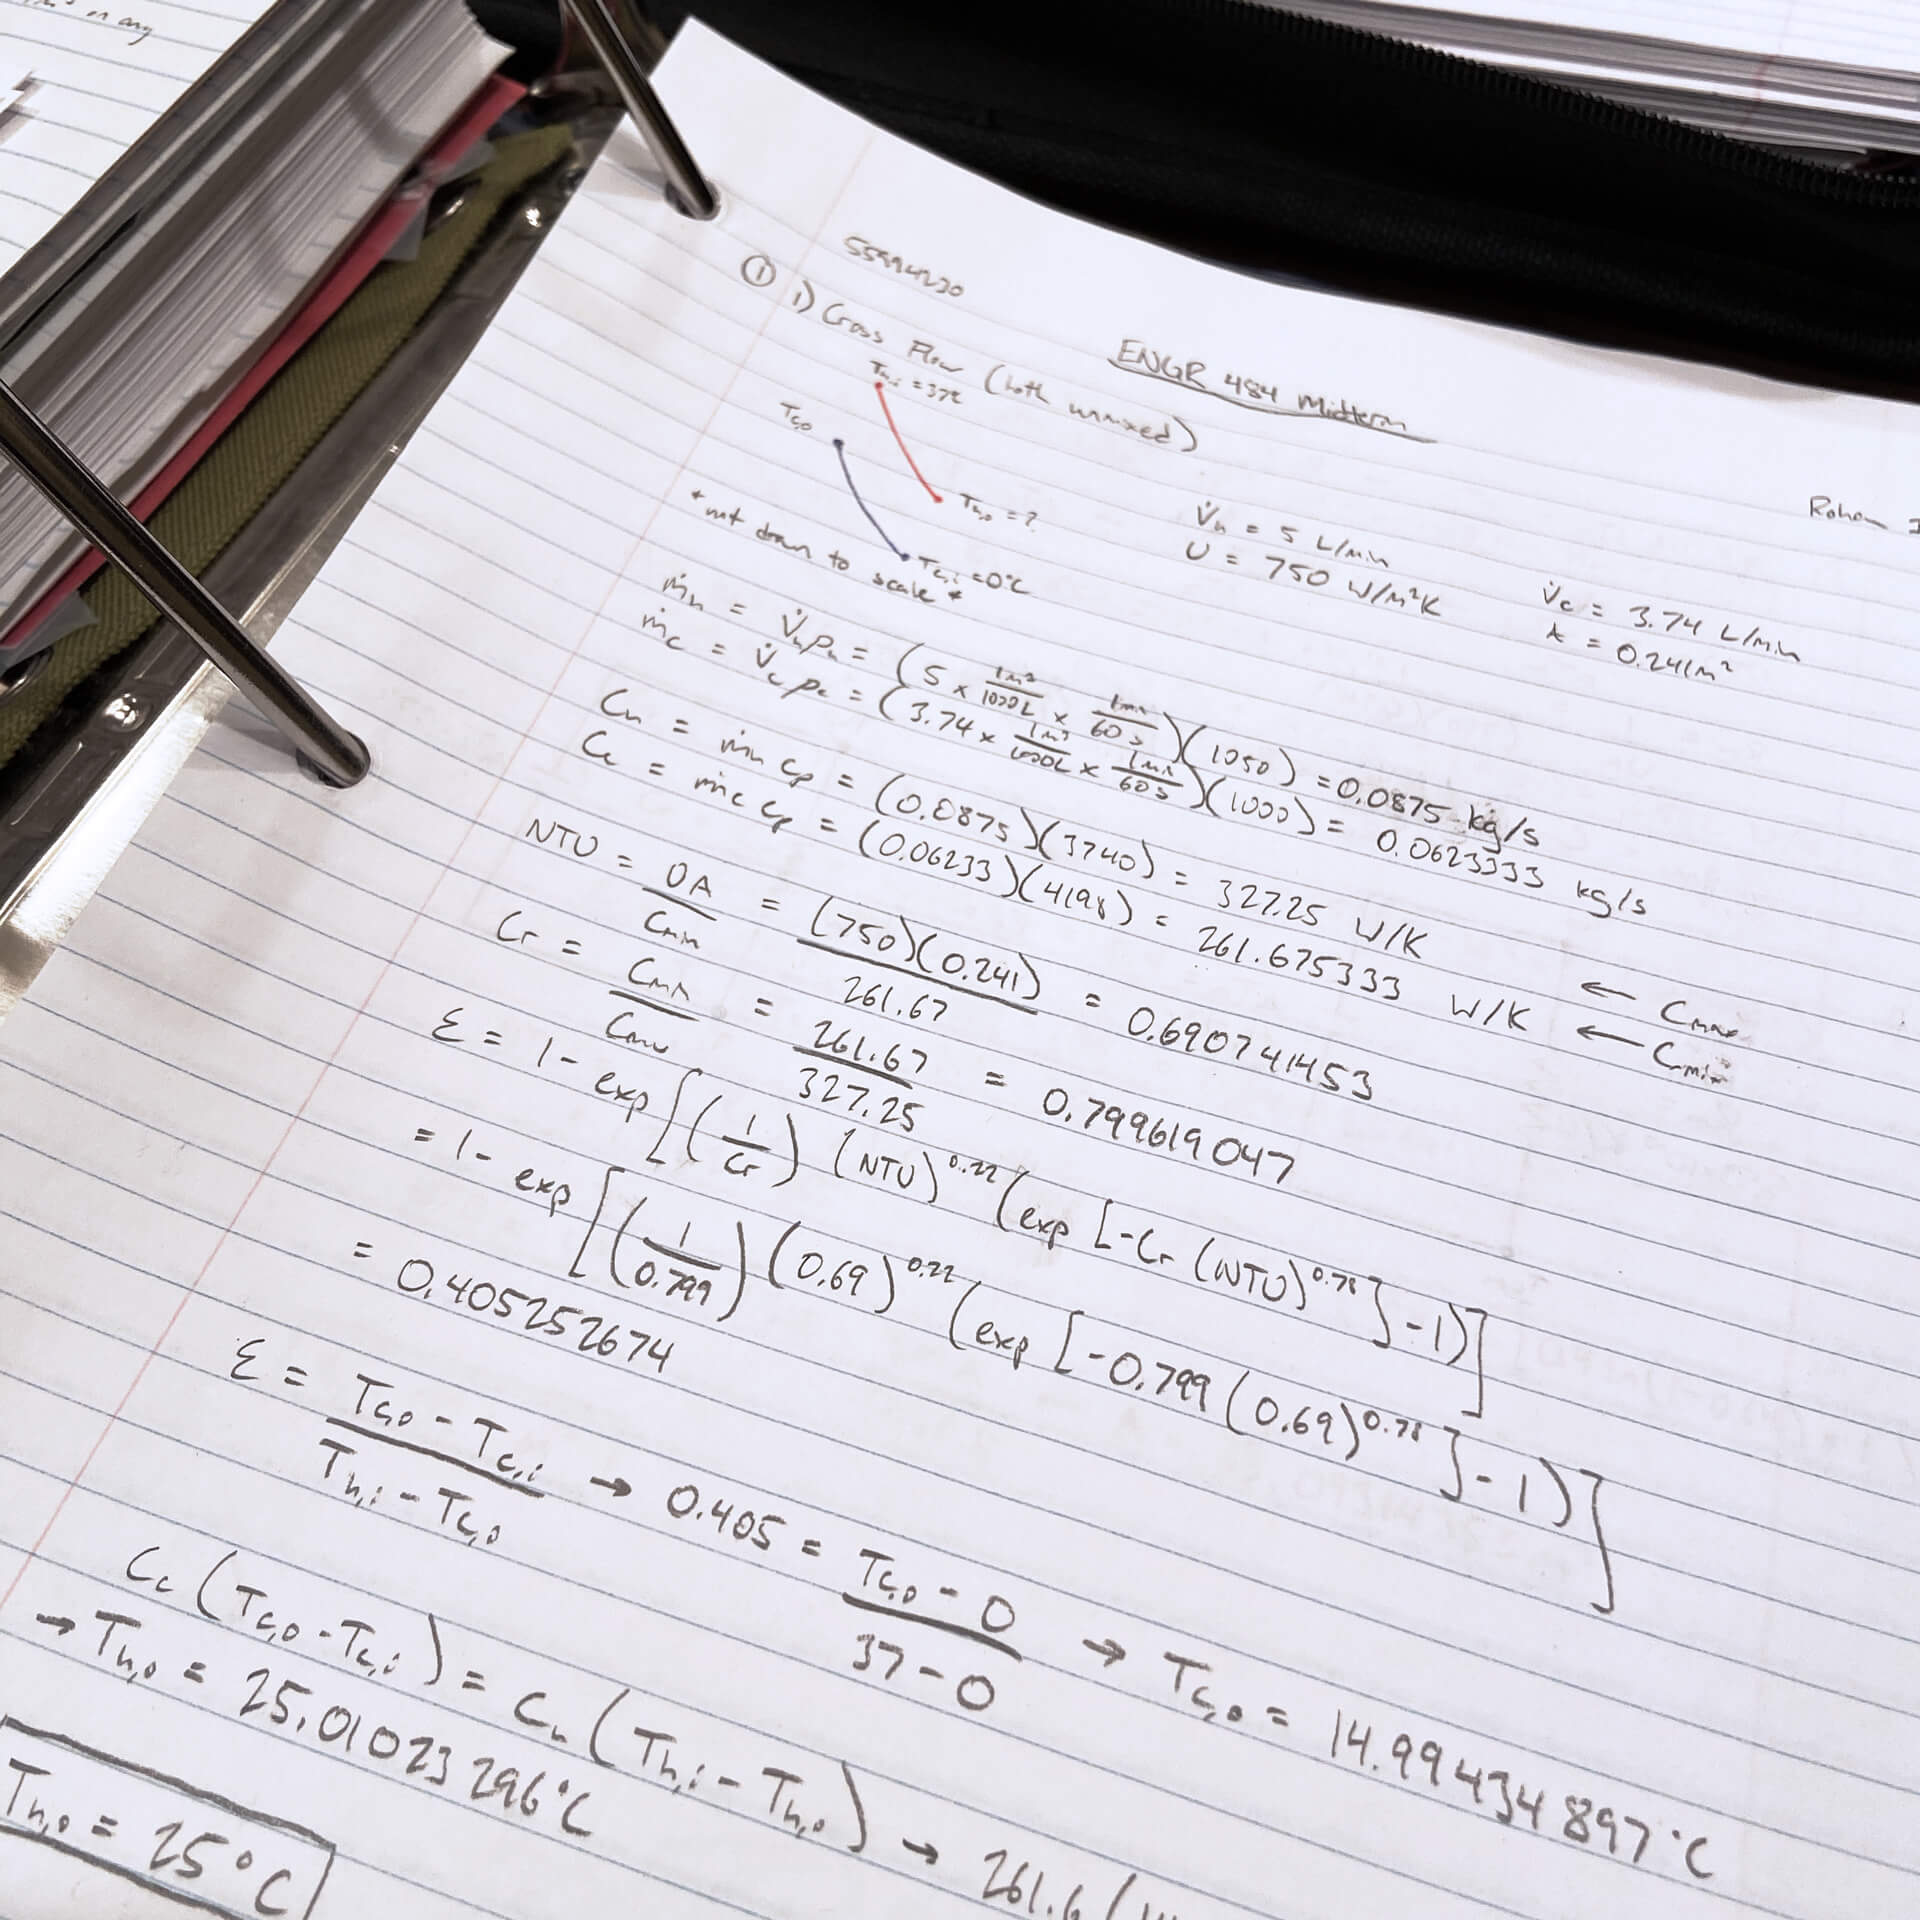 55594230
ENGR 484 Midterm
① i) Cross Flow (both unmixed)
T_h,i = 37°C
T_c,o
T_h,o = ?
T_c,i = 0°C
* not drawn to scale *
V̇_h = 5 L/min
U = 750 W/m²K
V̇_c = 3.74 L/min
A = 0.241m²
Rohan
ṁ_h = V̇_h ρ_h = (5 × 1m³/1000L × 1min/60s)(1050) = 0.0875 kg/s
ṁ_c = V̇_c ρ_c = (3.74 × 1m³/1000L × 1min/60s)(1000) = 0.0623333 kg/s
C_h = ṁ_h c_p = (0.0875)(3740) = 327.25 W/K ← C_max
C_c = ṁ_c c_p = (0.06233)(4198) = 261.675333 W/K ← C_min
NTU = UA/C_min = (750)(0.241)/261.67 = 0.690741453
C_r = C_min/C_max = 261.67/327.25 = 0.799619047
ε = 1 - exp[(1/C_r)(NTU)^0.22 (exp[-C_r (NTU)^0.78] - 1)]
= 1 - exp[(1/0.799)(0.69)^0.22 (exp[-0.799(0.69)^0.78] - 1)]
= 0.405252674
ε = (T_c,o - T_c,i)/(T_h,i - T_c,o) → 0.405 = (T_c,o - 0)/(37 - 0) → T_c,o = 14.99434897°C
C_c (T_c,o - T_c,i) = C_h (T_h,i - T_h,o) → 261.6
→ T_h,o = 25.01023296°C
T_h,o = 25°C